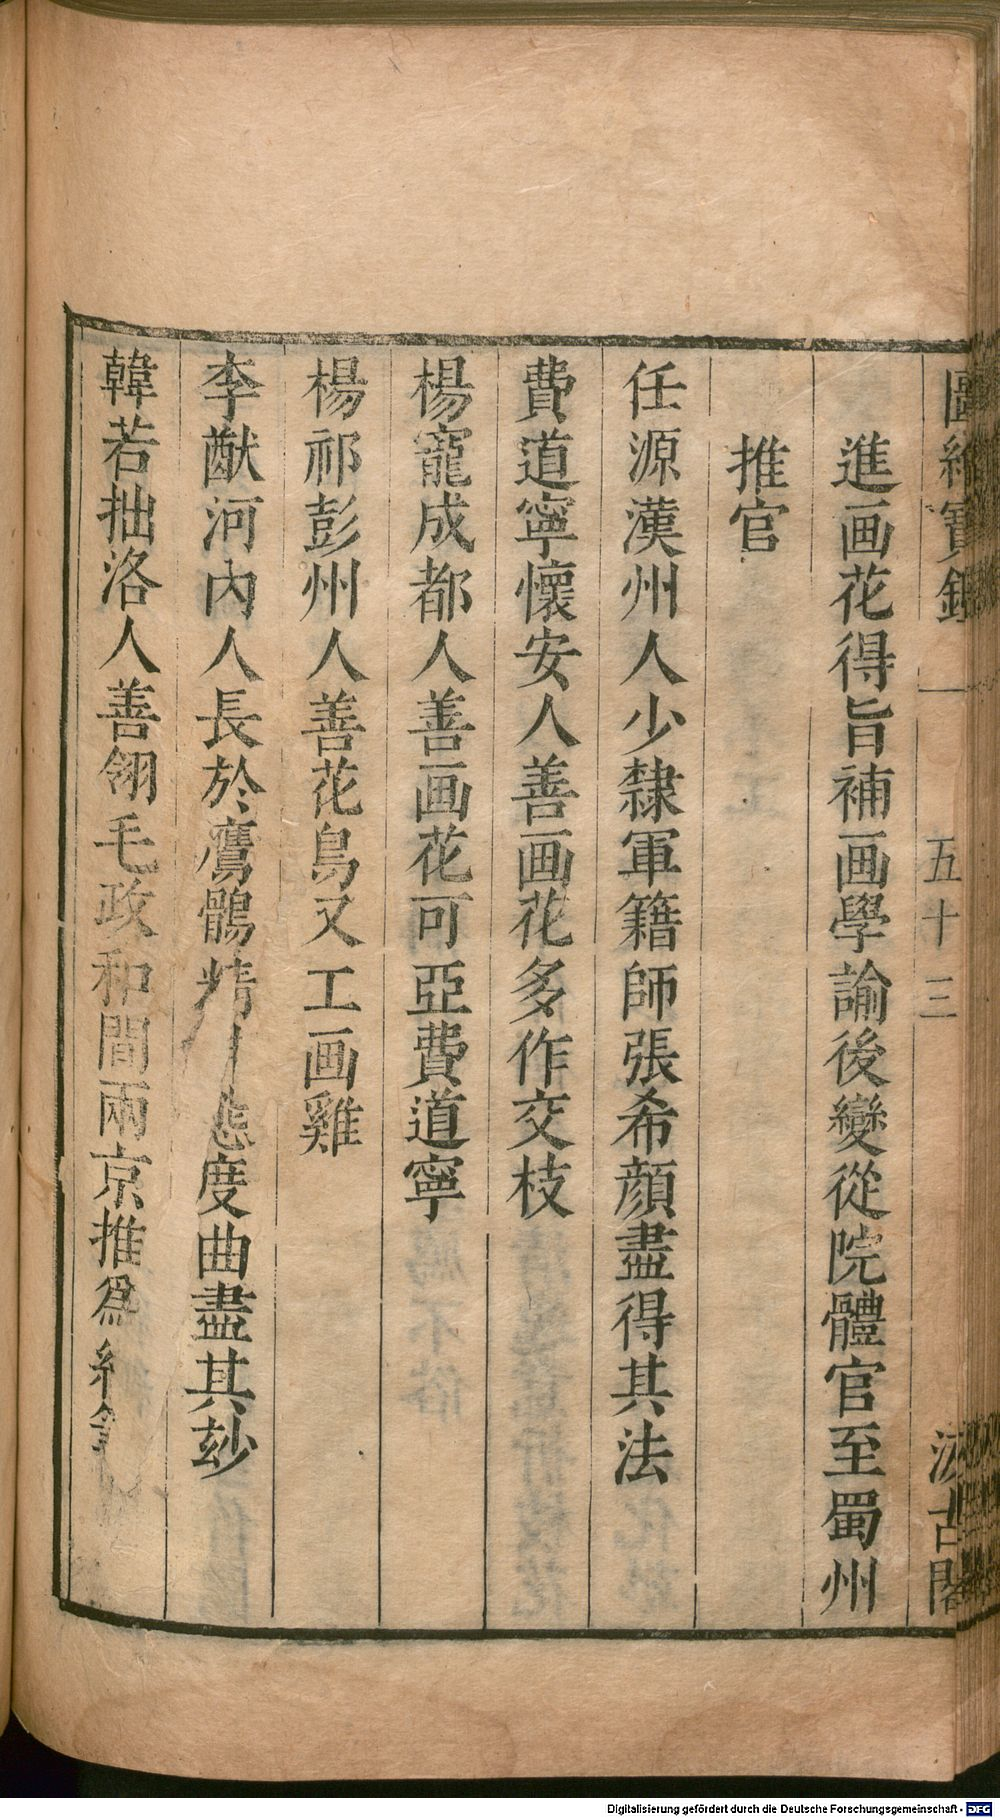 圖繪寶鑑 一 五十三 汲古閣
進画花得旨補画學諭後變從院體官至蜀州
推官
任源漢州人少隸軍籍師張希顔盡得其法
費道寧懷安人善画花多作交枝
楊寵成都人善画花可亞費道寧
楊祁彭州人善花鳥又工画雞
李猷河內人長於鷹鶻精 態度曲盡其玅
韓若拙洛人善翎毛政和間兩京推爲
Digitalisierung gefördert durch die Deutsche Forschungsgemeinschaft - DFG